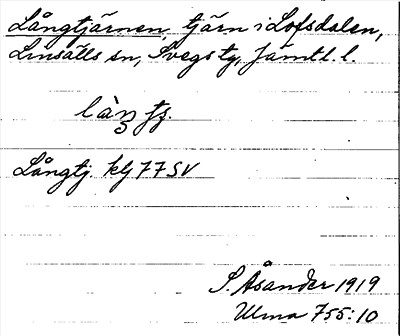 Långtjärnen, tjärn i Lofsdalen,
Linsälls sn, Svegs tg, Jämtl. l.
Långtj. kbl 77 SV
S. Åsander 1919
Ulma 755:10